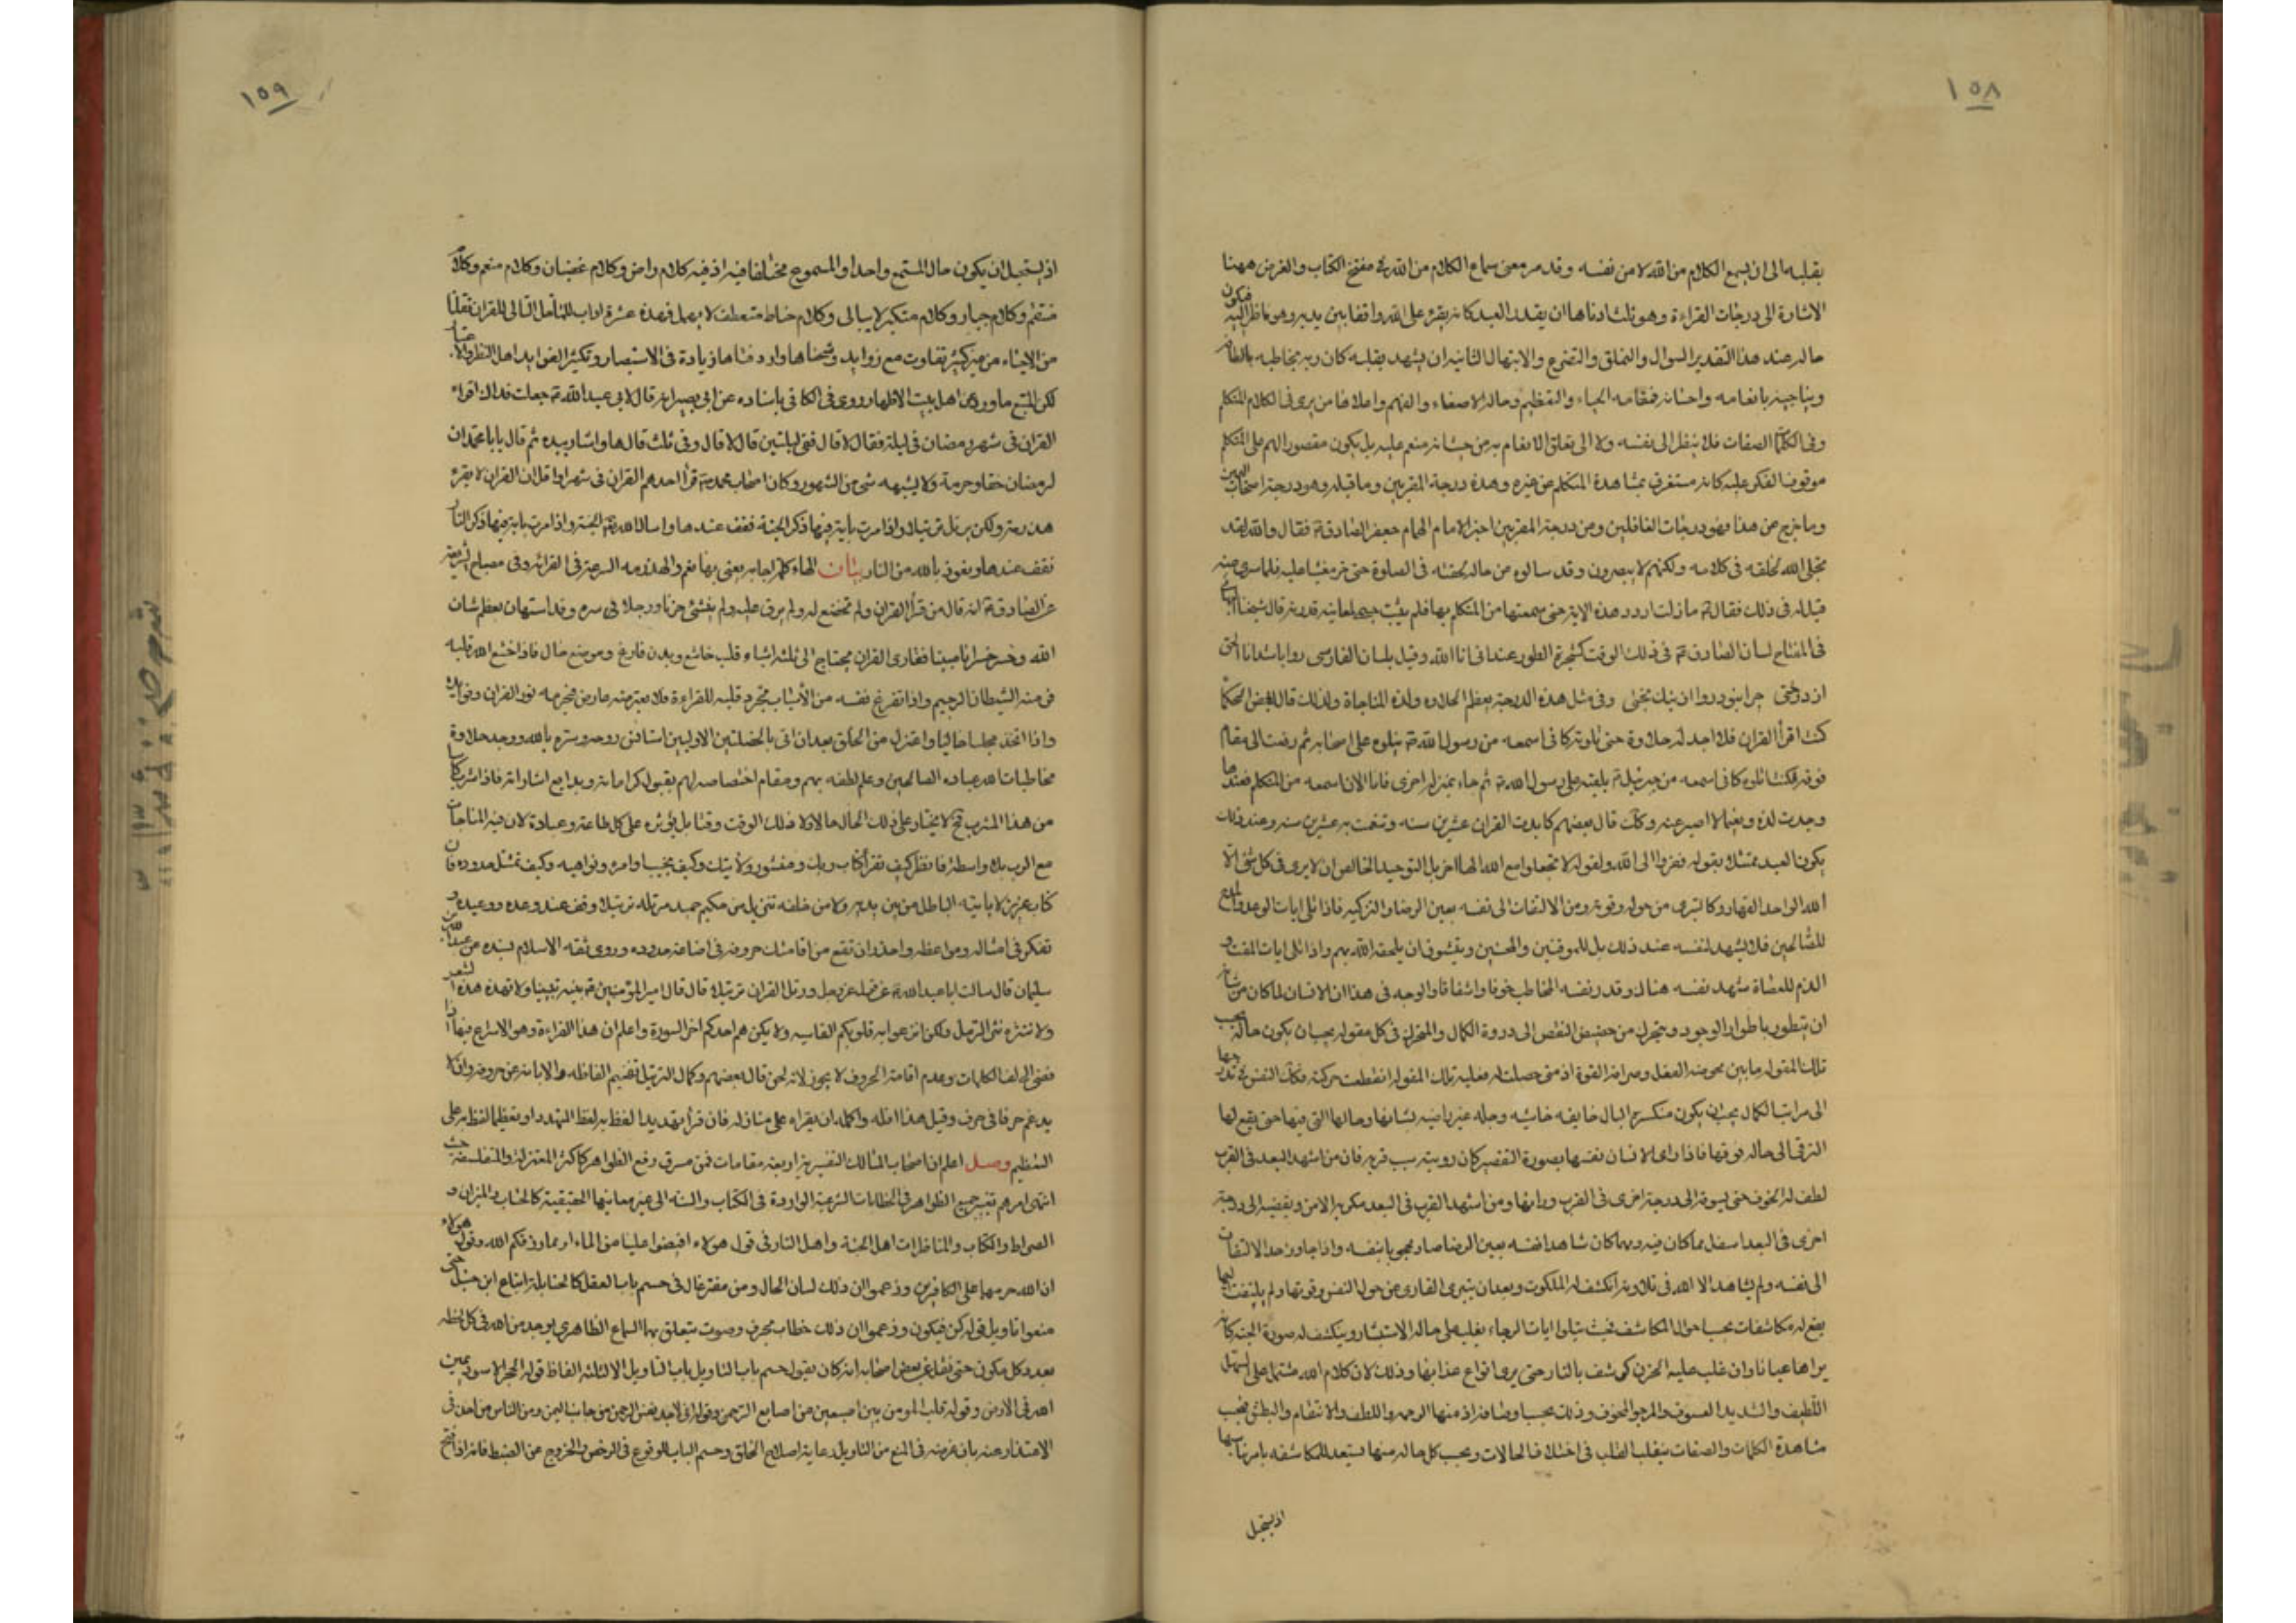 ١٥٨
بقلبه الى ان يسمع الكلام من الله لا من نفسه وقد مر معنى سماع الكلام من الله في مفتتح الكتاب والغرض ههنا
الاشارة الى درجات القراءة وهو ثلث ادناها ان يقدر العبد كانه يقرء على الله واقفا بين يديه وهو ناظر اليه فيكون
حاله عند هذا التقدير السوال والتملق والتضرع والابتهال الثانية ان يشهد بقلبه كان ربه يخاطبه بالطافه
ويناجيه بانعامه واحسانه فمقامه الحياء والتعظيم وحاله الاصغاء والفهم واعلاها من يرى في الكلام المتكلم
وفي الكلمات الصفات فلا ينظر الى نفسه ولا الى تعلق الانعام به من حيث انه منعم عليه بل يكون مقصور الهم على المتكلم
موقوف الفكر عليه كانه مستغرق بمشاهدة المتكلم عن غيره وهذه درجة المقربين وما قبله وهو درجة اصحاب اليمين
وما خرج من هذا فهو درجات الغافلين ومن درجة المقربين اخبر الامام الهمام جعفر الصادق فقال والله لقد
تجلى الله لخلقه في كلامه ولكنهم لا يبصرون وقد سالوه من حاله لحقته في الصلوة حتى خر مغشيا عليه فلما سري عنه
قيل له في ذلك فقال ما زلت اردد هذه الاية حتى سمعتها من المتكلم بها فلم يثبت جسمي لمعاينة قدرته قال شيخنا
في المفتاح لسان الصادق في ذلك الوقت كشجرة الطور عند اني انا الله وقيل بلسان الفارسي روا باشد انا الحق
از درختى چرا نبود روا از نيك بختى وفي مثل هذه الدرجة يعظم الحلاوة ولذة المناجاة ولذلك قال بعض الحكما
كنت اقرأ القران فلا اجد له حلاوة حتى تلوته كاني اسمعه من رسول الله يتلوه على اصحابه ثم رفعت الى مقام
فوقه فكنت اتلوه كاني اسمعه من جبرئيل يلقيه على رسول الله ثم جاء بمنزلة اخرى فانا الان اسمعه من المتكلم فعندها
وجدت لذة ونعيما لا اصبر عنه وكك قال بعضهم كابدت القران عشرين سنه وتنعمت به عشرين سنه وعند ذلك
يكون العبد ممتثلا بقوله ففروا الى الله ولقوله لا تجعلوا مع الله الها اخر بل التوحيد الخالص ان لا يرى في كل شئ الا
الله الواحد القهار وكالتبرى من حوله وقوته ومن الالتفات الى نفسه بعين الرضا والتزكيه فاذا تلى ايات الوعد والمدح
للصالحين فلا يشهد لنفسه عند ذلك بل للموقنين والمحسنين ويتشوق ان يلحقه الله بهم واذا تلى ايات المقت و
الذم للعصاة شهد نفسه هناك وقدر نفسه المخاطب خوفا واشفاقا والوجه في هذا ان الانسان لما كان من شانه
ان يتطور باطوار الوجود ويتحرك من حضيض النقص الى ذروة الكمال والمتحرك في كل مقوله يجب ان يكون حاله
تلك المقوله ما بين محوضة الفعل وصرافة القوة اذ متى حصلت له فعلية تلك المقوله انقطعت حركته فكك النفس في تدرجها
الى مراتب الكمال يجب ان يكون منكسر البال خايفه خاشيه وجله غير راضية بشانها وحالها التي فيها حتى يقع لها
الترقي الى حاله فوقها فاذا راى الانسان نفسها بصورة التقصير كان رويته سبب قربه فان من اشهد البعد في القرب
لطف له بالخوف حتى يسوقه الى درجة اخرى في القرب ورائها ومن اشهد القرب في البعد مكر به الامن ويفضيه الى درجة
اخرى في البعد اسفل مما كان فيه ومهما كان شاهدا نفسه بعين الرضا صار محجوبا بنفسه واذا جاوز حد الالتفات
الى نفسه ولم يشاهد الا الله في تلاوته انكشف له الملكوت وبعد ان يتبرى القارى عن حول النفس وقوتها ولم يلتفت اليها
يقع له مكاشفات بحسب احوال المكاشف فحيث يتلوا ايات الرجاء يغلب على حاله الاستبشار وينكشف له صورة الجنة كانه
يراها عيانا وان غلب عليه الحزن كوشف بالنار حتى يرى انواع عذابها وذلك لان كلام الله مشتمل على السهل
اللطيف والشديد العسوف والمرجو المخوف وذلك بحسب اوصافه اذ منها الرحمه واللطف والانتقام والبطش فبحسب
مشاهدة الكلمات والصفات يتقلب القلب في اختلاف الحالات وبحسب كل حاله منها يستعد للمكاشفه بامر يناسبها
اذ يستحيل
١٥٩
اذ يستحيل ان يكون حال المستمع واحدا والمسموع مختلفا فيه اذ فيه كلام راض وكلام غضبان وكلام منعم وكلام
منتقم وكلام جبار وكلام متكبر لا يبالى وكلام حنان متعطف لا يهمل فهذه عشرة اداب للمتامل التالى للقران نقلناها
من الاحياء من غير كثير تفاوت مع زوايد وشحناها واردفناها زيادة في الاستبصار وتكثيرا لفوايد اهل النظر والاعتبار
لكن المتبع ما ورد عن اهل بيت الاطهار روى في الكافي باسناده عن ابي بصير انه قال لابي عبد الله جعلت فداك اقراء
القران في شهر رمضان في ليلة فقال لا قال ففي ليلتين قال لا قال وفي ثلث قال ها واشار بيده ثم قال يا با محمد ان
لرمضان حقا وحرمة ولا يشبهه شئ من الشهور وكان اصحاب محمد يقرأ احدهم القران في شهر او اقل ان القران لا يقرء
هذرمة ولكن يرتل ترتيلا واذا مررت باية فيها ذكر الجنة فقف عندها واسال الله الجنة واذا مررت باية فيها ذكر النار
فقف عندها وتعوذ بالله من النار بيان الهاء كلمة اجابه يعنى بها نعم والهذرمه السرعة في القراءة وفي مصباح الشريعة
عن الصادق انه قال من قرأ القران ولم تخضع له ولم يرق عليه ولم ينشئ حزنا ووجلا في سره وقد استهان بعظم شان
الله وخسر خسرانا مبينا فقارى القران يحتاج الى ثلثه اشياء قلب خاشع وبدن فارغ وموضع خال فاذا خشع لله قلبه
فر منه الشيطان الرجيم واذا تفرغ نفسه من الاسباب تجرد قلبه للقراءة فلا يعترضه عارض فيحرمه نور القران وفوايده
واذا اتخذ مجلسا خاليا واعتزل من الخلق بعد ان اتى بالخصلتين الاوليين استانس روحه وسره بالله ووجد حلاوة
مخاطبات الله عباده الصالحين وعلم لطفه بهم ومقام اختصاصه لهم بقبول كراماته وبدايع اشاراته فاذا شرب كاسا
من هذا المشرب ح لا يختار على ذلك الحال حالا ولا ذلك الوقت وقتا بل يؤثره على كل طاعة وعبادة لان فيه المناجات
مع الرب بلا واسطة فانظر كيف تقرأ كتاب ربك ومنشور ولايتك وكيف تجيب اوامره ونواهيه وكيف تمتثل حدوده فان
كتاب عزيز لا ياتيه الباطل من بين يديه ولا من خلفه تنزيل من حكيم حميد مرتله ترتيلا وقف عند وعده ووعيده و
تفكر في امثاله ومواعظه واحذر ان تقع من اقامتك حروفه في اضاعة حدوده وروى ثقة الاسلام بسنده عن عبد الله بن
سليمان قال سالت ابا عبد الله عن قوله عز وجل ورتل القران ترتيلا قال قال امير المؤمنين بينه تبيينا ولا تهذه هذ الشعر
ولا تنثره نثر الرمل ولكن افزعوا به قلوبكم القاسيه ولا يكن هم احدكم اخر السورة واعلم ان هذ القراءة وهو الاسراع فيها اذا
يدغم حرفا في حرف وقيل هذا اقله واكمله ان يقراه على منازله فان قرأ تهديدا لفظ به لفظ التهدد او تعظيما لفظ به على
التعظيم وصل اعلم ان اصحاب المسالك التفسيريه اربعة مقامات فمن مسرف رفع الظواهر كاكثر المعتزلة والمتفلسفة حيث
انتهى امرهم تغيير جميع الظواهر في الخطابات الشرعية الواردة في الكتاب والسنه الى غير معانيها الحقيقية كالحساب والميزان و
الصراط والكتاب والمناظرات اهل الجنة واهل النار في قول هولاء افيضوا علينا من الماء او مما رزقكم الله وقول هولاء
ان الله حرمهما على الكافرين وزعموا ان ذلك لسان الحال ومن مقتر غال في حسم باب العقل كالحنابلة اتباع ابن حنبل حتى
منعوا تاويل قوله كن فيكون وزعموا ان ذلك خطاب بحرف وصوت يتعلق بهما السماع الظاهرى يوجد من الله في كل لحظه
بعدد كل مكون حتى نقل عن بعض اصحابه انه كان يقول حسم باب التاويل الا لثلثه الفاظ قوله الحجر الاسود يمين
الله في الارض وقوله قلب المومن بين اصبعين من اصابع الرحمن وقوله اني لاجد نفس الرحمن من جانب اليمن ومن الناس من اخذ في
الاعتذار عنه بان غرضه في المنع من التاويل رعاية اصلاح الخلق وحسم الباب للوقوع في الرخص والخروج عن الضبط فانه اذا فتح